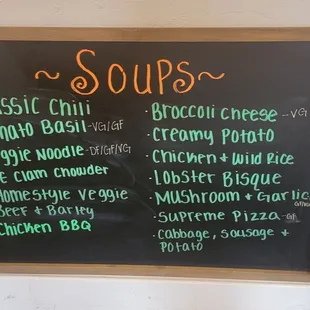 ~Soups~
assic Chili
mato Basil -VG/GF
ggie Noodle -DF/GF/VG
E Clam Chowder
Homestyle Veggie
Beef + Barley
Chicken BBQ
· Broccoli Cheese -VG
· Creamy Potato
· Chicken + Wild Rice
· Lobster Bisque
· Mushroom + Garlic
· Supreme Pizza -GF
· Cabbage, Sausage +
Potato